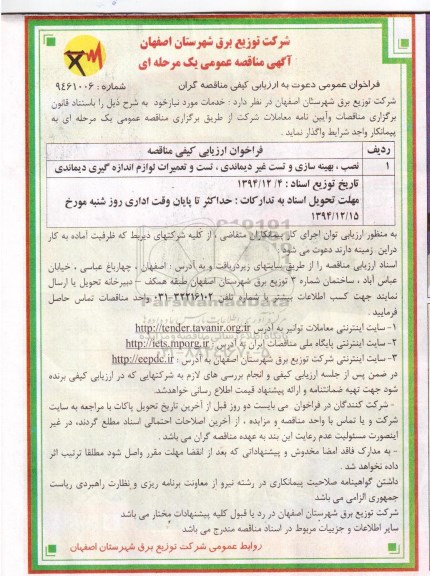 شرکت توزیع برق شهرستان اصفهان
آگهی مناقصه عمومی یک مرحله ای
فراخوان عمومی دعوت به ارزیابی کیفی مناقصه گران
شماره : ۹۴۶۱۰۰۶
شرکت توزیع برق شهرستان اصفهان در نظر دارد : خدمات مورد نیازخود به شرح ذیل را باستناد قانون
برگزاری مناقصات وآیین نامه معاملات شرکت از طریق برگزاری مناقصه عمومی یک مرحله ای به
پیمانکار واجد شرایط واگذار نماید .
ردیف فراخوان ارزیابی کیفی مناقصه
۱ نصب ، بهینه سازی و تست غیر دیماندی ، تست و تعمیرات لوازم اندازه گیری دیماندی
تاریخ توزیع اسناد : ۱۳۹۴/۱۲/۰۴
مهلت تحویل اسناد به تدارکات : حداکثر تا پایان وقت اداری روز شنبه مورخ
۱۳۹۴/۱۲/۱۵
به منظور ارزیابی توان اجرای کار پیمانکاران متقاضی ، از کلیه شرکتهای ذیربط که ظرفیت آماده به کار
دراین زمینه دارند دعوت می شود
اسناد ارزیابی مناقصه را از طریق سایتهای زیردریافت و به آدرس : اصفهان ، چهارباغ عباسی ، خیابان
عباس آباد ، ساختمان شماره ۳ توزیع برق شهرستان اصفهان طبقه همکف – دبیرخانه تحویل یا ارسال
نمایند جهت کسب اطلاعات بیشتر با شماره تلفن ۳۲۲۱۶۱۰۲-۰۳۱ واحد مناقصات تماس حاصل
فرمایید .
۱- سایت اینترنتی معاملات توانیر به آدرس http://tender.tavanir.org.ir
۲- سایت اینترنتی پایگاه ملی مناقصات ایران به آدرس : http://iets.mporg.ir
۳- سایت اینترنتی شرکت توزیع برق شهرستان اصفهان به آدرس : http://eepdc.ir
در ضمن پس از جلسه ارزیابی کیفی و انجام بررسی های لازم به شرکتهایی که در ارزیابی کیفی برنده
شود جهت تهیه ضمانتنامه و ارائه پیشنهاد قیمت اطلاع رسانی خواهدشد.
- شرکت کنندگان در فراخوان می بایست دو روز قبل از آخرین تاریخ تحویل پاکات با مراجعه به سایت
شرکت و یا تماس با واحد مناقصه و مزایده ، از آخرین اصلاحات احتمالی اسناد مطلع گردند، در غیر
اینصورت مسئولیت عدم رعایت این بند به عهده مناقصه گران می باشد .
- به مدارک فاقد امضا مخدوش و پیشنهاداتی که بعد از انقضا مهلت مقرر واصل شود مطلقا ترتیب اثر
داده نخواهد شد .
داشتن گواهینامه صلاحیت پیمانکاری در رشته نیرو از معاونت برنامه ریزی و نظارت راهبردی ریاست
جمهوری الزامی می باشد
شرکت توزیع برق شهرستان اصفهان در رد یا قبول کلیه پیشنهادات مختار می باشد
سایر اطلاعات و جزییات مربوط در اسناد مناقصه مندرج می باشد
روابط عمومی شرکت توزیع برق شهرستان اصفهان